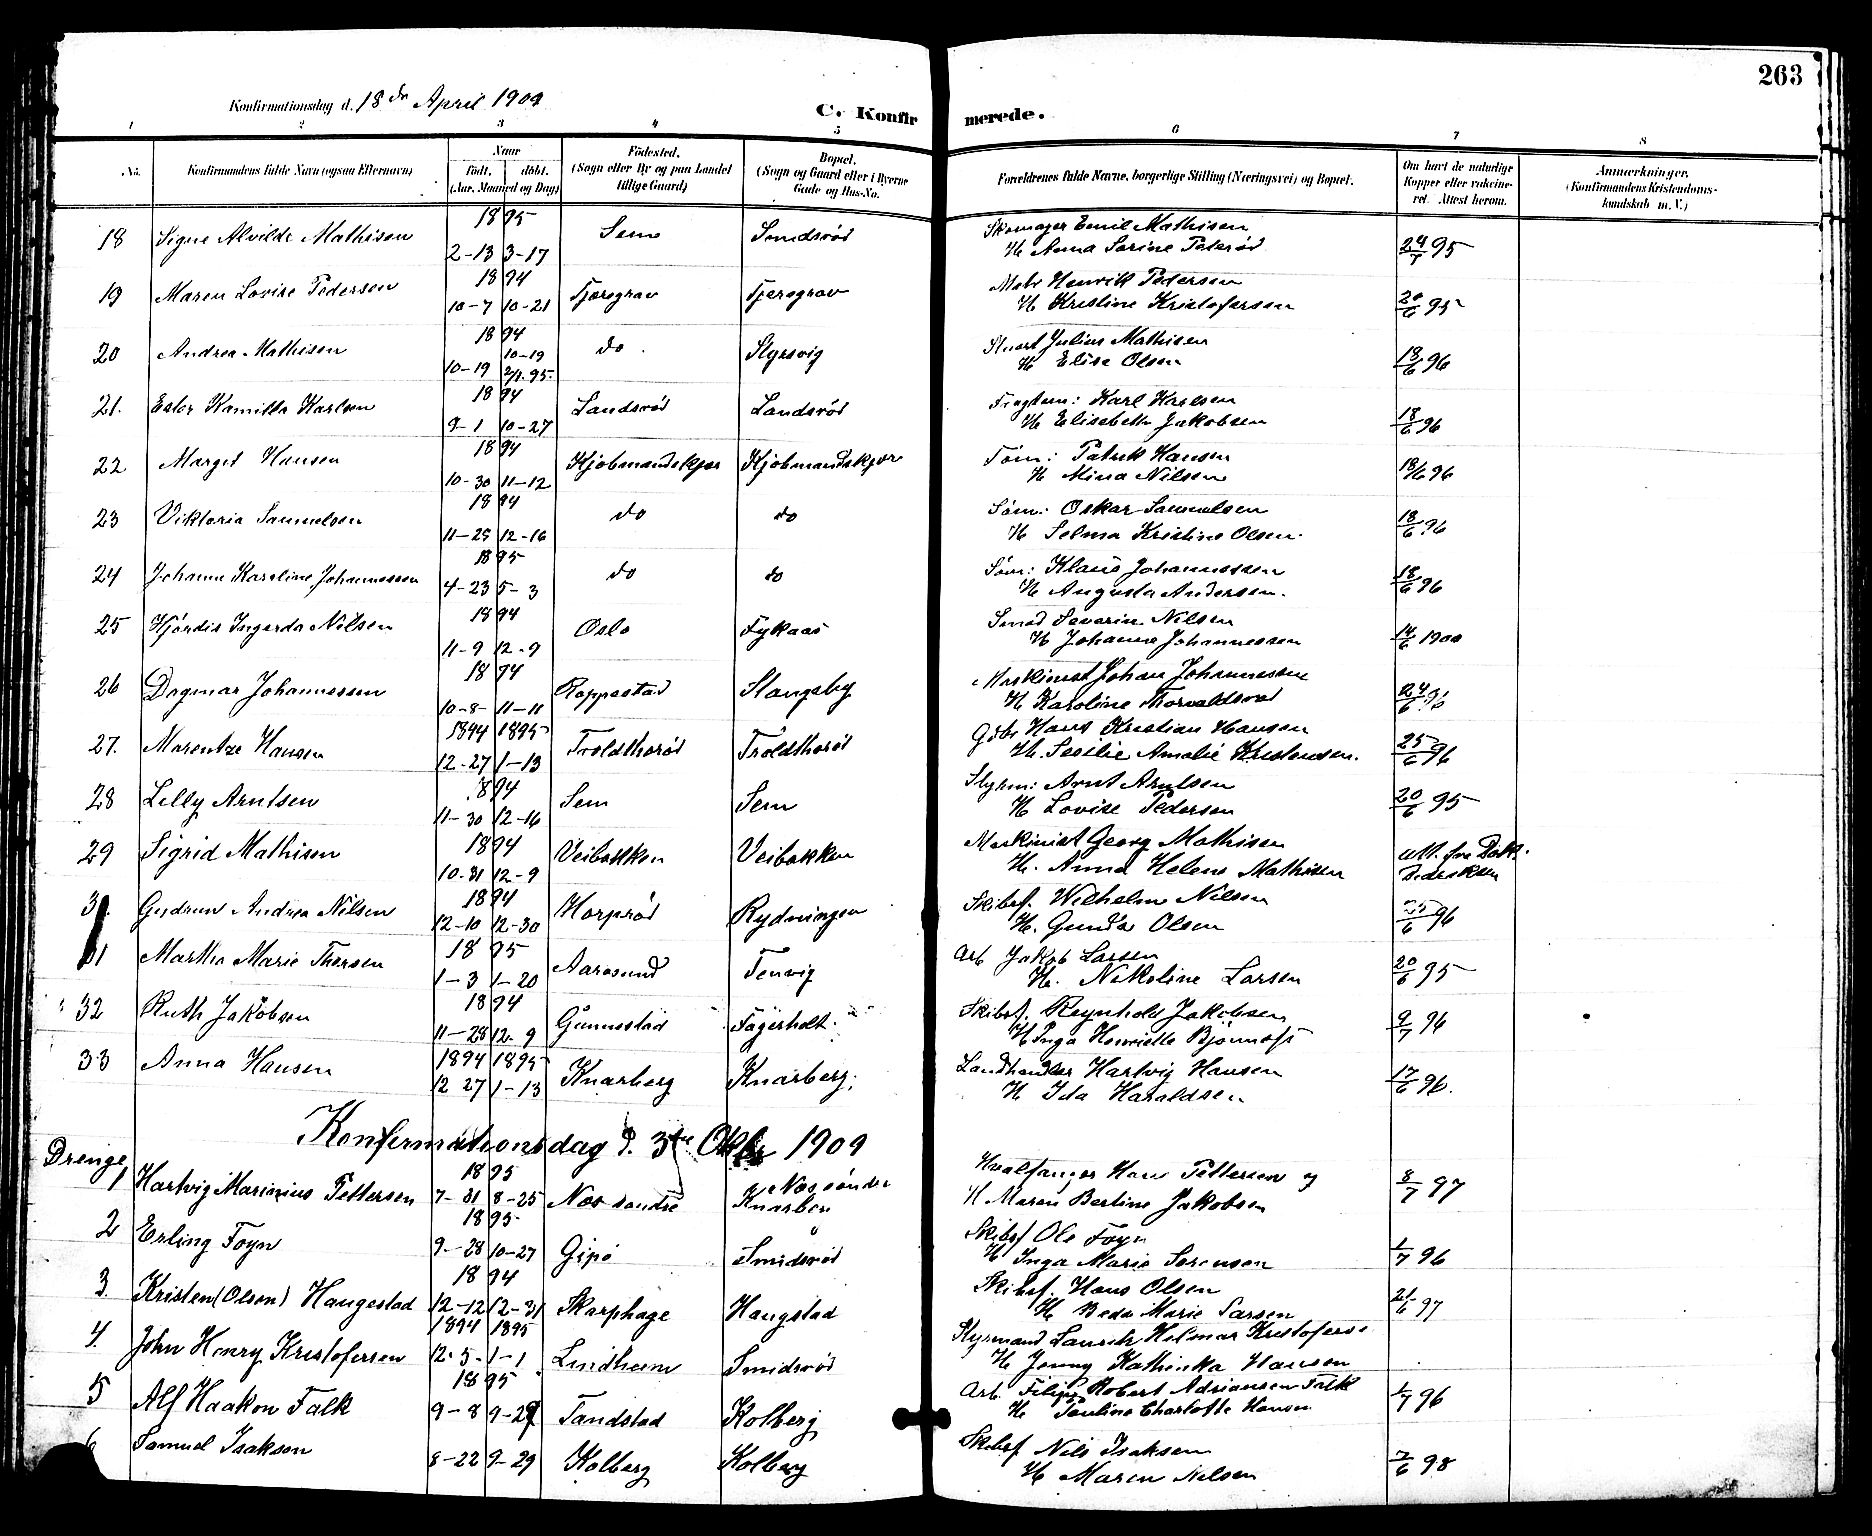 263
Konfirmationsdag d. 18de April 1909
C. Konfirmerede.
1 2 3 4 5 6 7 8
No. Konfirmandens fulde Navn (ogsaa Efternavn) Naar født, døbt. (Aar, Maaned og Dag) Fødested. (Sogn eller By og paa Landet tillige Gaard) Bopæl. (Sogn og Gaard eller i Byerne Gade og Hus-No. Forældrenes fulde Navne, borgerlige Stilling (Næringsvei) og Bopæl. Om havt de naturlige Kopper eller vakcineret. Attest herom. Anmærkninger. (Konfirmandens Kristendomskundskab m. V.)
18 Signe Alvilde Mathisen 1895 2-13 3-17 Sem Smidsrød Skomager Emil Mathisen
H Anna Sorine Peterød 24/7 95
19 Maren Lovise Pedersen 1894 10-7 10-21 Tjøregrav Tjøregrav Mat. Henrik Pedersen
H Kristine Kristofersen 20/6 95
20 Andrea Mathisen 1894 10-19 10-19 2/1.95. do. Styrsvig Stuert Julius Mathisen
H Elise Olsen 18/6 96
21. Ester Kamilla Karlsen 1894 9-1 10-27 Landsrød Landsrød Karl Karlsen
H Elisabeth Jakobsen 18/6 96
22 Margit Hansen 1894 10-30 11-12 Kjøbmandskjær Kjøbmandskjær Tøm: Patrik Hansen
H Mina Nilsen 18/6 96
23 Viktoria Samuelsen 1894 11-25 12-16 do do Søm: Oskar Samuelsen
H Selma Kristine Olsen. 18/6 96
24 Johanne Karoline Johannessen 1895 4-23 5-3 do do Søm: Klaus Johannessen
H Augusta Andersen. 18/6 96
25 Hjørdis Ingarda Nilsen 1894 11-9 12-9 Oslo Fykaas Smed Severin Nilsen
H Johanne Johannessen 14/6 1900
26 Dagmar Johannessen 1894 10-8- 11-11 Roppestad Stangeby Maskinist Johan Johannessen
H Karoline Thorvaldsrød 24/6 96
27. Marentze Hansen 1894 1895 12-27 1-13 Troldthorød Troldthorød Gbr Hans Kristian Hansen
H. Sesilie Amalie Kristensen. 25/6 96
28 Lilly Arntsen 1894 11-30 12-16 Sem Sem Styrm: Arnt Arntsen
H Lovise Pedersen 20/6 95
29 Sigrid Mathisen 1894 10-31 12-9 Veibakken Veibakken Maskinist Georg Mathisen
H. Anna Helene Mathisen att. fra Dokt. Dedeksen
30. Gudrun Andrea Nilsen 1894 12-10 12-30 Horprød Rydningen Skibsf. Wilhelm Nilsen
H. Gunda Olsen 25/6 96
31 Martha Marie Thorsen 1895 1-3 1-20 Aarøsund Tenvig Arb Jakob Larsen
H. Nikoline Larsen 20/6 95
32 Ruth Jakobsen 1894 11-28 12-9 Gunnestad Fagerholt Skibsf. Reynhold Jakobsen
H Inga Henriette Bjønnes 9/7 96
33 Anna Hansen 1894 1895 12 27 1-13 Knarberg Knarberg. Landhandler Hartvig Hansen
H Ida Haraldsen 17/6 96.
Konfirmationsdag d. 3die Oktbr 1909
Drenge
1 Hartvig Marinius Pettersen 1895 7-31 8-25 Nøs søndre Nøs søndre Knarberg Hvalfanger Hans Pettersen og
H Maren Bertine Jakobsen 8/7 97
2 Erling Foyn 1895 9-28 10-27 Gipø Smidsrød Skibsf Ole Foyn
H Inga Marie Sørensen 1/7 96
3. Kristen (Olsen) Haugestad 1894 12-12 12-31 Skarphage Haugstad Skibsf. Hans Olsen
H Beda Marie Larsen 21/6 97
4. John Henry Kristofersen 1894 1895 12-5- 1-1 Lindheim Smidsrød Styrmand Laurits Hilmar Kristofersen
H Jenny Kathinka Hansen
5 Alf Haakon Falk 1895 9-8 9-29 Tandstad Kolberg Arb. Filip Robert Adriansen Falk
H Pauline Charlotte Hansen 1/7 96
6 Samuel Isaksen 8-22 9-29 Kolberg Kolberg Skibsf Nils Isaksen
H Maren Nilsen 7/6 98